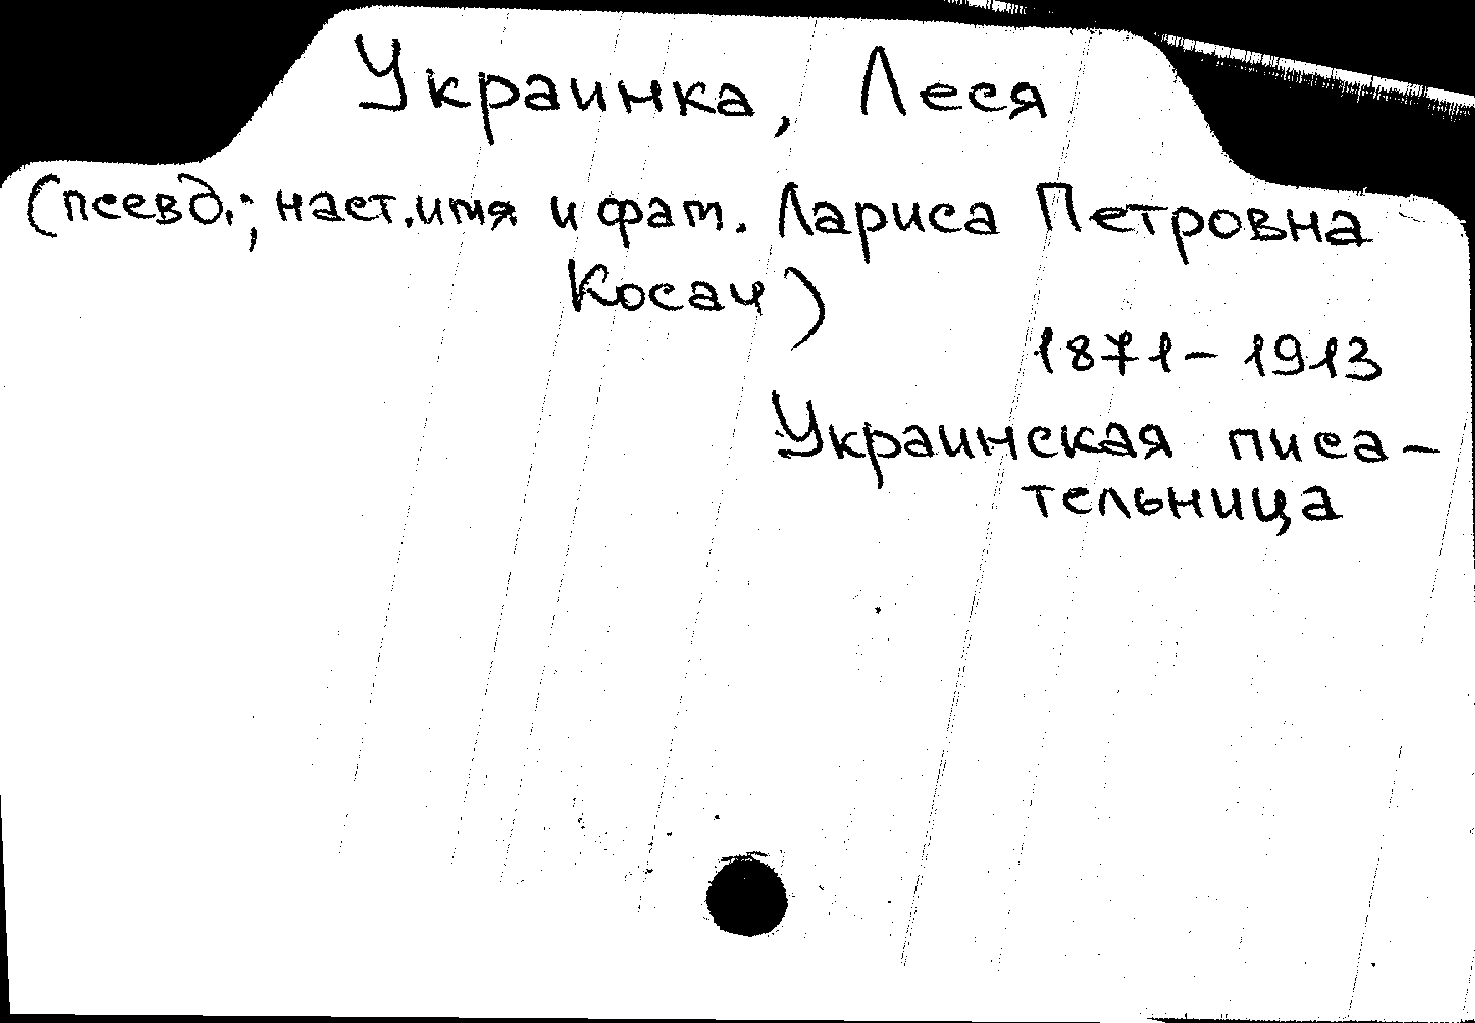 Украинка, Леся
(псевд.; наст. имя и фам. Лариса Петровна
Косач)
1871-1913
Украинская писа-
тельница